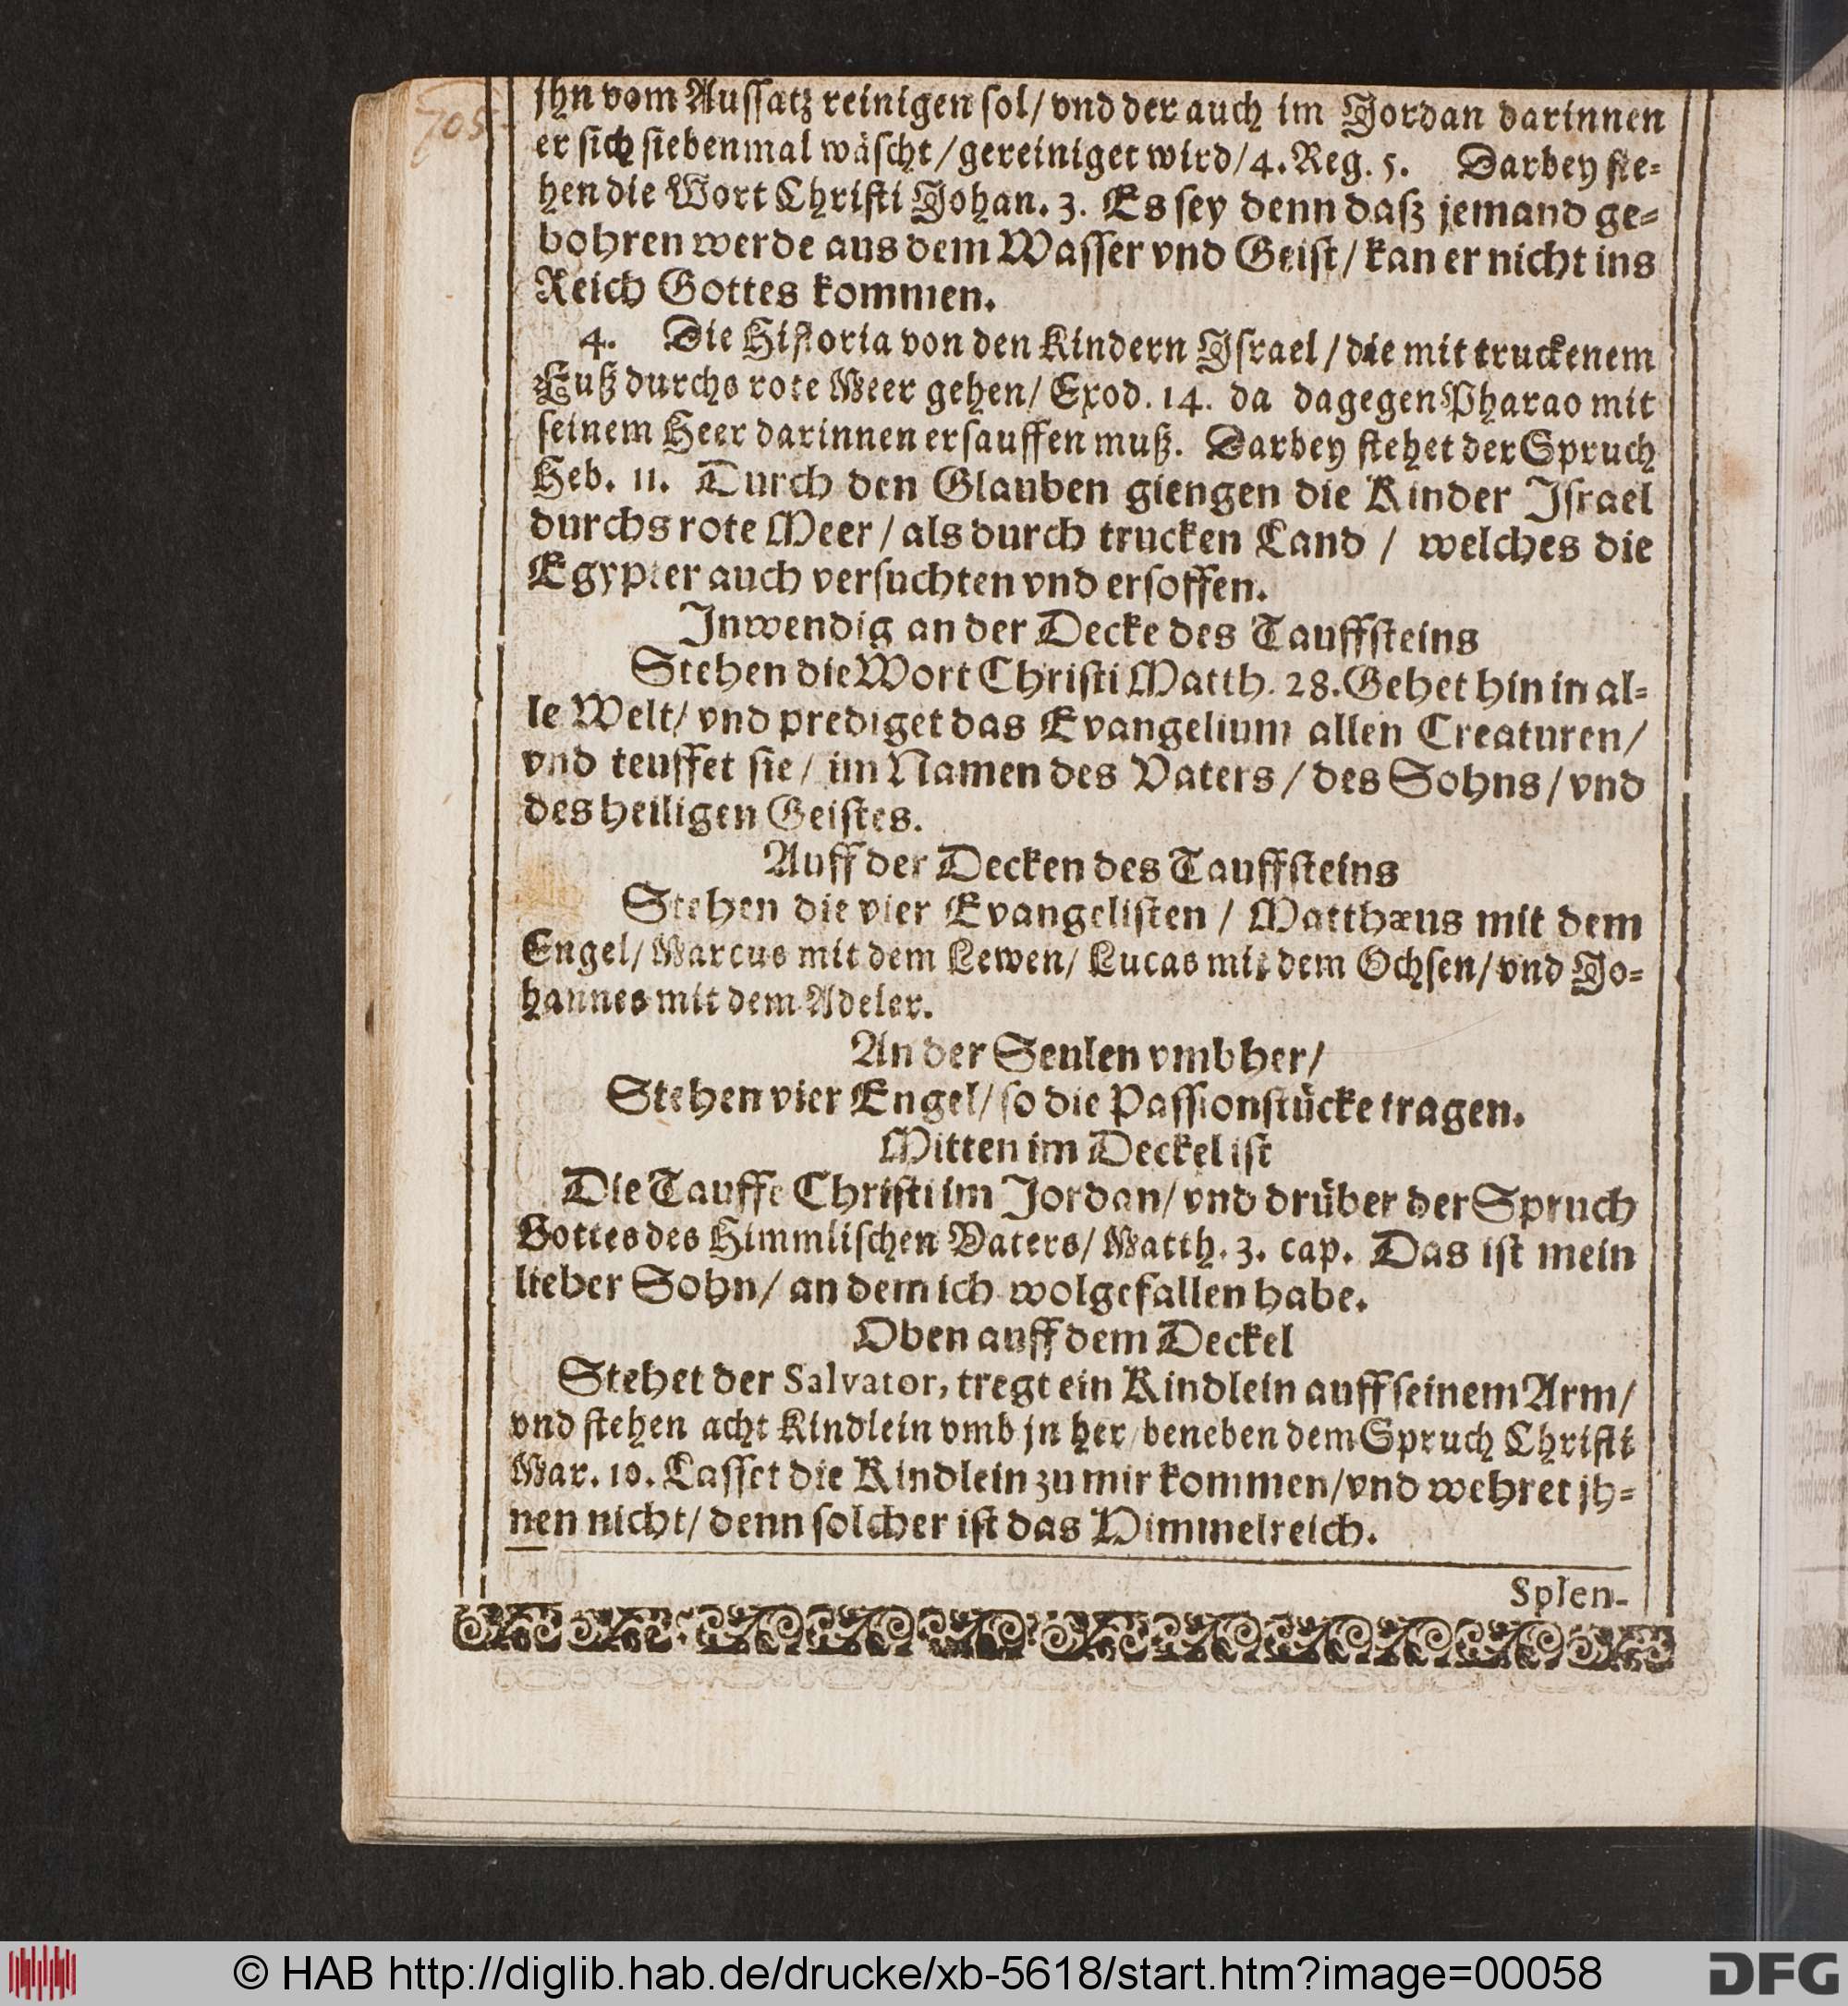 705
jhn vom Aussatz reinigen sol/ vnd der auch im Jordan darinnen
er sich siebenmal wäscht/ gereiniget wird/ 4. Reg. 5. Darbey ste-
hen die Wort Christi Johan. 3. Es sey denn daß jemand ge-
bohren werde aus dem Wasser vnd Geist/ kan er nicht ins
Reich Gottes kommen.
4. Die Historia von den Kindern Jsrael/ die mit truckenem
Fuß durchs rote Meer gehen/ Exod. 14. da dagegen Pharao mit
seinem Heer darinnen ersauffen muß. Darbey stehet der Spruch
Heb. 11. Durch den Glauben giengen die Kinder Jsrael
durchs rote Meer/ als durch trucken Land/ welches die
Egypter auch versuchten vnd ersoffen.
Jnwendig an der Decke des Tauffsteins
Stehen die Wort Christi Matth. 28. Gehet hin in al-
le Welt/ vnd prediget das Evangelium allen Creaturen/
vnd teuffet sie/ im Namen des Vaters/ des Sohns/ vnd
des heiligen Geistes.
Auff der Decken des Tauffsteins
Stehen die vier Evangelisten/ Matthæus mit dem
Engel/ Marcus mit dem Lewen/ Lucas mit dem Ochsen/ vnd Jo-
hannes mit dem Adeler.
An der Seulen vmbher/
Stehen vier Engel/ so die Passionstücke tragen.
Mitten im Deckel ist
Die Tauffe Christi im Jordan/ vnd drüber der Spruch
Gottes des Himmlischen Vaters/ Matth. 3. cap. Das ist mein
lieber Sohn/ an dem ich wolgefallen habe.
Oben auff dem Deckel
Stehet der Salvator, tregt ein Kindlein auff seinem Arm/
vnd stehen acht Kindlein vmb jn her/ beneben dem Spruch Christi
Mar. 10. Lasset die Kindlein zu mir kommen/ vnd wehret jh-
nen nicht/ denn solcher ist das Himmelreich.
Splen-
© HAB http://diglib.hab.de/drucke/xb-5618/start.htm?image=00058
DFG